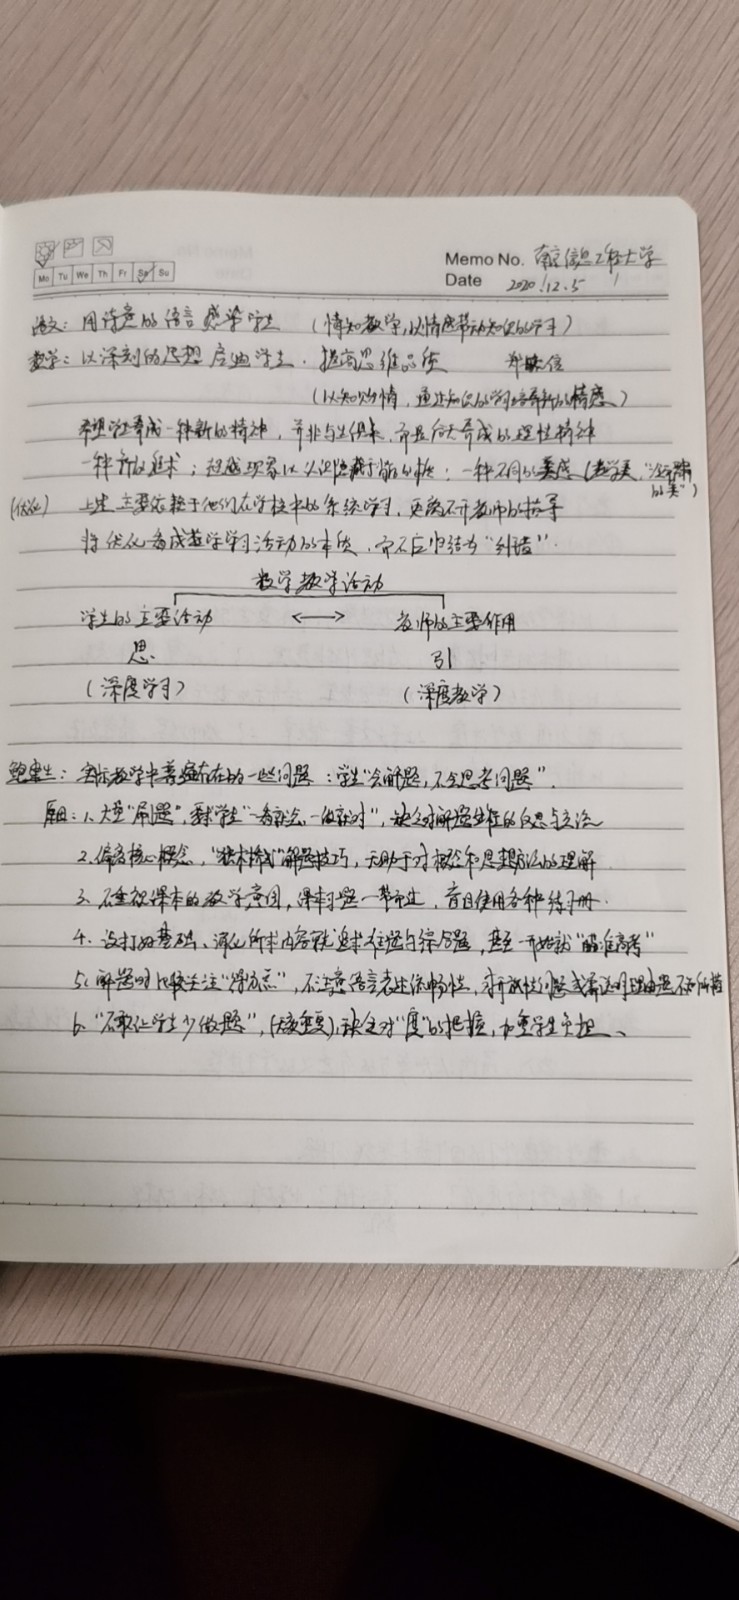 Memo No. 南京信息工程大学
Mo Tu We Th Fr Sa Su
Date 2020.12.5
语文：用诗意的语言感染学生 （情知教学，以情感带动知识的学习）
数学：以深刻的思想启迪学生，提高思维品质 郑毓信
（以知贻情，通过知识的学习培养新的情感）
希望学生养成一种新的精神，并非与生俱来，而是后天养成的理性精神
一种新的追求；超越现象以认识隐藏于背后的本质；一种不同的美感（数学美，"冷而严肃的美"）
（优化） 上述主要依赖于他们在学校中的系统学习，更离不开教师的指导
将优化看成数学学习活动的本质，而不应归结为"纠错"．
数学教学活动
学生的主要活动 ⟷ 教师的主要作用
思 引
（深度学习） （深度教学）
鲍建生：实际教学中普遍存在的一些问题：学生"会解题，不会思考问题"．
原因：1、大量"刷题"，要求学生"一看就会，一做就对"，缺乏对解题过程的反思与交流
2、偏离核心概念，"技术模式"解题技巧，无助于对概念和思想方法的理解
3、不重视课本的教学意图，课本习题一带而过，盲目使用各种练习册．
4、没打好基础、深化所求内容就追求难题与综合题，甚至一开始就"瞄准高考"
5、解题时比较关注"得分点"，不注意语言表述流畅性，对开放性问题或需说明理由题不知所措
6、"不敢让学生少做题"，（大量重复），缺乏对"度"的把握，加重学生负担、